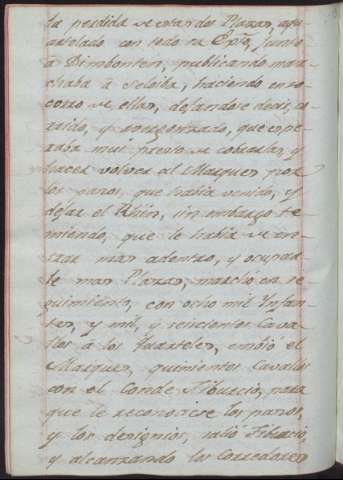 la perdida de estandos Plazas, aqu
artelado con todo su Exto, junto
à publicando mar
chaba à haciendo en so
corro de ellas, dejandose decir, co
rrido, y avergonzado, que espe
raba mui presto de cobrarlas, y
hacer volver al Marques por
los pasos, que habia venido, y
dejar el sin embargo te
miendo, que le habia de en
trar mas adentro, y ocupar
le mas Plazas, marchó en se
guimiento, con ocho mil Infan
tes, y mil, y seiscientos Cava
llos à los embió el
Marques, quinientos Cavallos
con el Conde Tiburcio, para
que le reconociese los pasos,
y los designios, salió Tiburcio,
y alcanzando los Corredores